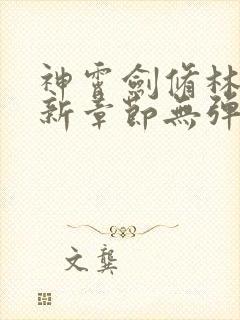 神霄劍脩林
新章節無彈
文龔